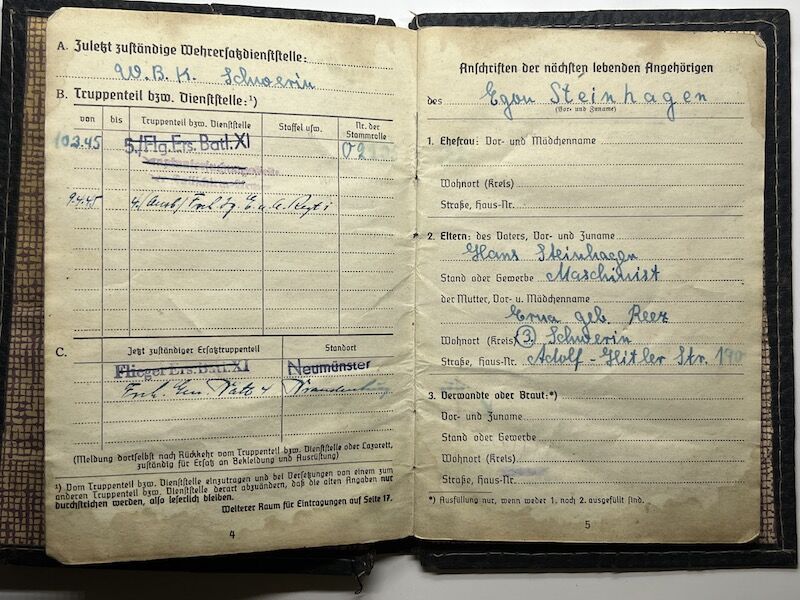 A. Zuletzt zuständige Wehrersatzdienststelle:
W.B.K. Schwerin
B. Truppenteil bzw. Dienststelle:¹)
von bis Truppenteil bzw. Dienststelle Staffel usw. Nr. der Stammrolle
5./Flg.Ers.Batl.XI
9.4.45
C. Jetzt zuständiger Ersatztruppenteil Standort
Flieger Ers.Batl.XI Neumünster
Brandenburg
(Meldung dortselbst nach Rückkehr vom Truppenteil bzw. Dienststelle oder Lazarett,
zuständig für Ersatz an Bekleidung und Ausrüstung)
¹) Vom Truppenteil bzw. Dienststelle einzutragen und bei Versetzungen von einem zum
anderen Truppenteil bzw. Dienststelle derart abzuändern, daß die alten Angaben nur
durchstrichen werden, also leserlich bleiben.
Weiterer Raum für Eintragungen auf Seite 17.
4
Anschriften der nächsten lebenden Angehörigen
des Egon Steinhagen
(Vor- und Zuname)
1. Ehefrau: Vor- und Mädchenname
Wohnort (Kreis)
Straße, Haus-Nr.
2. Eltern: des Vaters, Vor- und Zuname
Hans Steinhagen
Stand oder Gewerbe Maschinist
der Mutter, Vor- u. Mädchenname
Erna geb. Reez
Wohnort (Kreis) 3 Schwerin
Straße, Haus-Nr. Adolf-Hitler Str. 190
3. Verwandte oder Braut:*)
Vor- und Zuname
Stand oder Gewerbe
Wohnort (Kreis)
Straße, Haus-Nr.
*) Ausfüllung nur, wenn weder 1. noch 2. ausgefüllt sind.
5